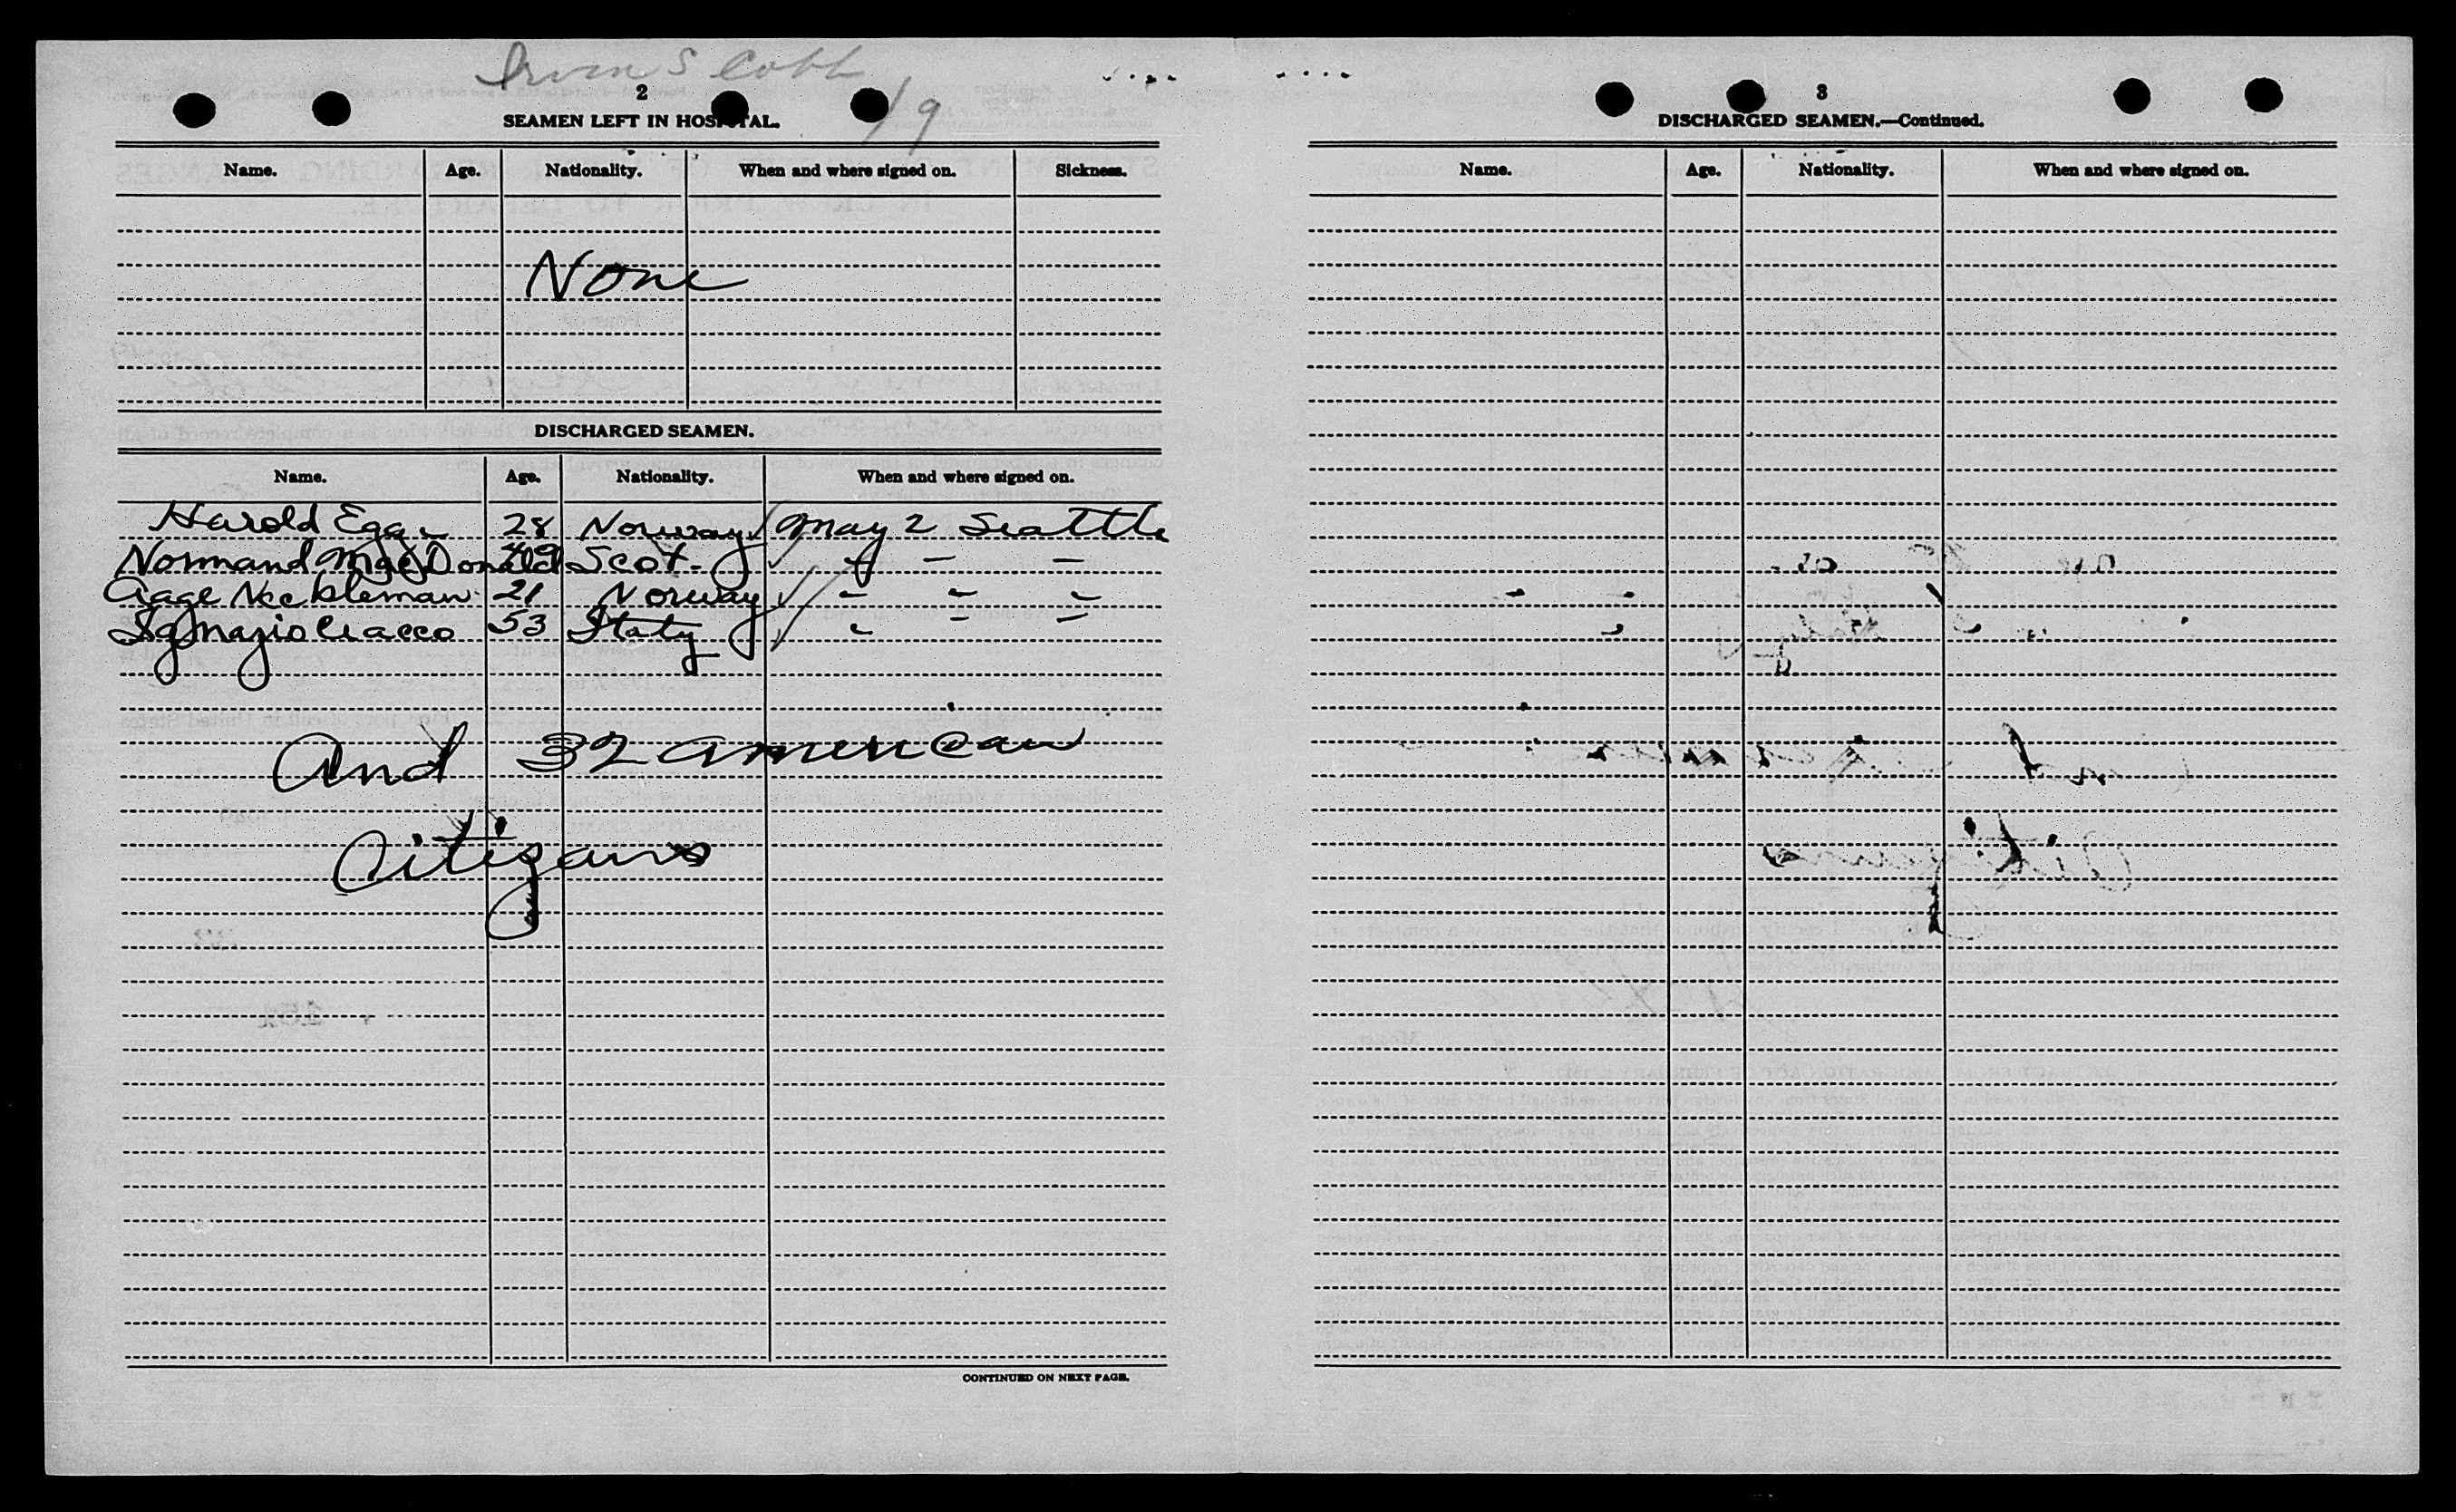 Irvin S Cobb
19
2
SEAMEN LEFT IN HOSPITAL.
Name. Age. Nationality. When and where signed on. Sickness.
None
DISCHARGED SEAMEN.
Name. Age. Nationality. When and where signed on.
Harold Egge 28 Norway May 2 Seattle
Normand MacDonald Scot. " - -
Aage 21 Norway " " "
Ignazio Ciacco 53 Italy " " "
And 32 american
Citizans
CONTINUED ON NEXT PAGE.
3
DISCHARGED SEAMEN.—Continued.
Name. Age. Nationality. When and where signed on.